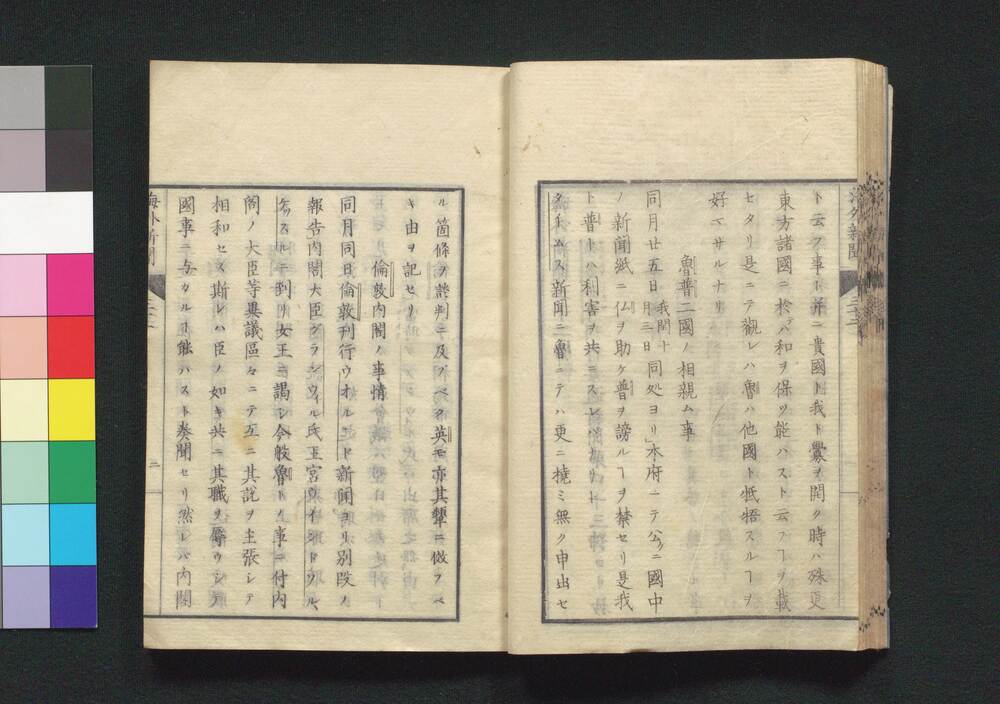 ト云フ事ト并ニ貴國ト我ト釁ヲ開ク時ハ殊更
東方諸國ニ於ハ和ヲ保ツ能ハスト云フヿヲ載
セタリ是ニテ觀レハ魯ハ他國ト牴牾スルヿヲ
好マサルナリ
魯普二國ノ相親ム事
同月廿五日我閏十月三日同処ヨリ本府ニテ公ニ國中
ノ新聞紙ニ仏ヲ助ケ普ヲ謗ルヿヲ禁セリ是我
ト普トハ利害ヲ共ニスレハナリト
新聞ニ魯ニテハ更ニ撓ミ無ク申出セ
ル箇條ヲ談判ニ及フベク英モ亦其顰ニ倣フベ
キ由ヲ記セリ
倫敦内閣ノ事情
同月同日倫敦刊行新聞ヨリ別段ノ
報告内閣大臣グランウィル氏王宮
ニ到リ女王ニ謁シ今般魯トノ事ニ付内
閣ノ大臣等異議區々ニテ互ニ其説ヲ主張シテ
相和セス斯レハ臣ノ如キ共ニ其職ヲ辱ウシテ
國事ニ与カルヿ能ハスト奏聞セリ然レバ内閣
海外新聞
二